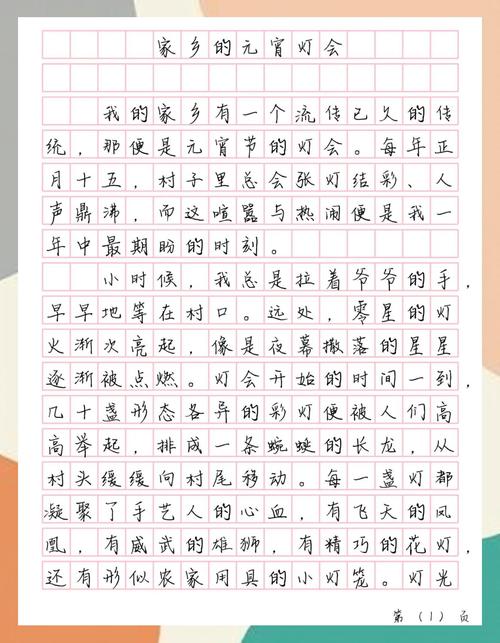 家乡的元宵灯会
我的家乡有一个流传已久的传
统，那便是元宵节的灯会。每年正
月十五，村子里总会张灯结彩、人
声鼎沸，而这喧嚣与热闹便是我一
年中最期盼的时刻。
小时候，我总是拉着爷爷的手，
早早地等在村口。远处，零星的灯
火渐次亮起，像是夜幕撒落的星星
逐渐被点燃。灯会开始的时间一到，
几十盏形态各异的彩灯便被人们高
高举起，排成一条蜿蜒的长龙，从
村头缓缓向村尾移动。每一盏灯都
凝聚了手艺人的心血，有飞天的凤
凰，有威武的雄狮，有精巧的花灯，
还有形似农家用具的小灯笼。灯光
第（1）页